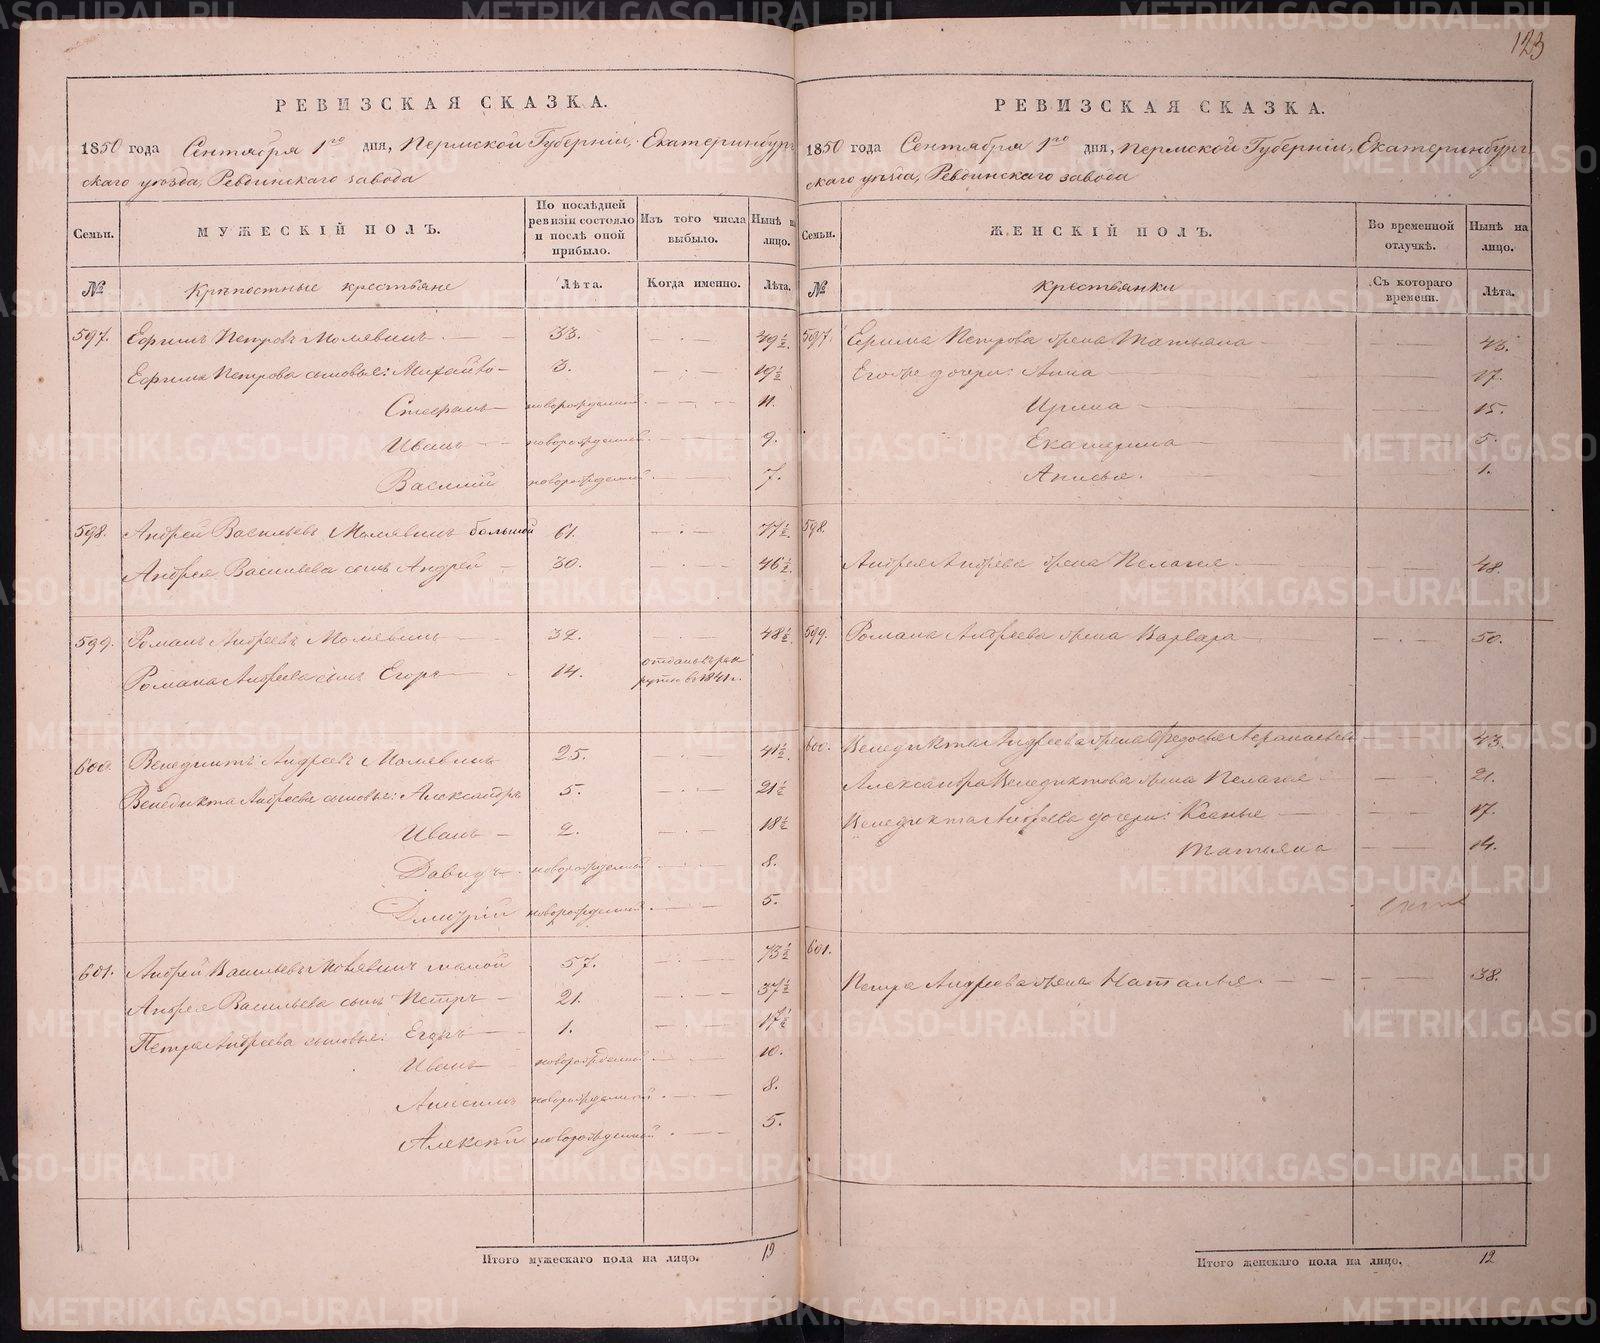 123
РЕВИЗСКАЯ СКАЗКА.
1850 года Сентября 1го дня, Пермской Губернiи, Екатеринбург
скаго уѣзда, Ревдинскаго завода
Семьи.
МУЖЕСКIЙ ПОЛЪ.
По послѣдней ревизiи состояло и послѣ оной прибыло.
Изъ того числа выбыло.
Нынѣ на лицо.
№
Крѣпостные крестьяне
Лѣта.
Когда именно.
Лѣта.
597. Ефимъ Петровъ Молявинъ 33. 49½.
Ефима Петрова сыновья: Михайло 3. 19½
Стефанъ новорожденный 11.
Иванъ новорожденный 9.
Василий новорожденный 7.
598. Андрей Васильевъ Молявинъ большой 61. 77½
Андрея Васильева сынъ Андрей 30. 46½
599. Романъ Андреевъ Молявинъ 32. 48½
Романа Андреева сынъ Егоръ 14. отданъ въ рек
руты въ 1841 г.
600. Венедиктъ Андреевъ Молявинъ 25. 41½
Венедикта Андреева сыновья: Александръ 5. 21½
Иванъ 2. 18½
Давидъ новорожденный 8.
Дмитрiй новорожденный 5.
601. Андрей Васильевъ Молявинъ малой 57. 73½
Андрея Васильева сынъ Петръ 21. 37½
Петра Андреева сыновья: Егоръ 1. 17½
Иванъ новорожденный 10.
Анисимъ новорожденный 8.
Алексѣй новорожденный 5.
Итого мужескаго пола на лицо. 19
РЕВИЗСКАЯ СКАЗКА.
1850 года Сентября 1го дня, Пермской Губернiи, Екатеринбург
скаго уѣзда, Ревдинскаго завода
Семьи.
ЖЕНСКIЙ ПОЛЪ.
Во временной отлучкѣ.
Нынѣ на лицо.
№
Крестьянки
Съ котораго времени.
Лѣта.
597. Ефима Петрова жена Татьяна 43.
Его же дочери: Анна 17.
Ирина 15.
Екатерина 5.
Анисья. 1.
598.
Андрея Андреева жена Пелагея 48.
599. Романа Андреева жена Варвара 50.
600. Венедикта Андреева жена Федосья 43.
Александра Венедиктова жена Пелагея 21.
Венедикта Андреева дочери: Ксенья 17.
Татьяна 14.
601.
Петра Андреева жена Наталья 38.
Итого женскаго пола на лицо. 12
METRIKI.GASO-URAL.RU